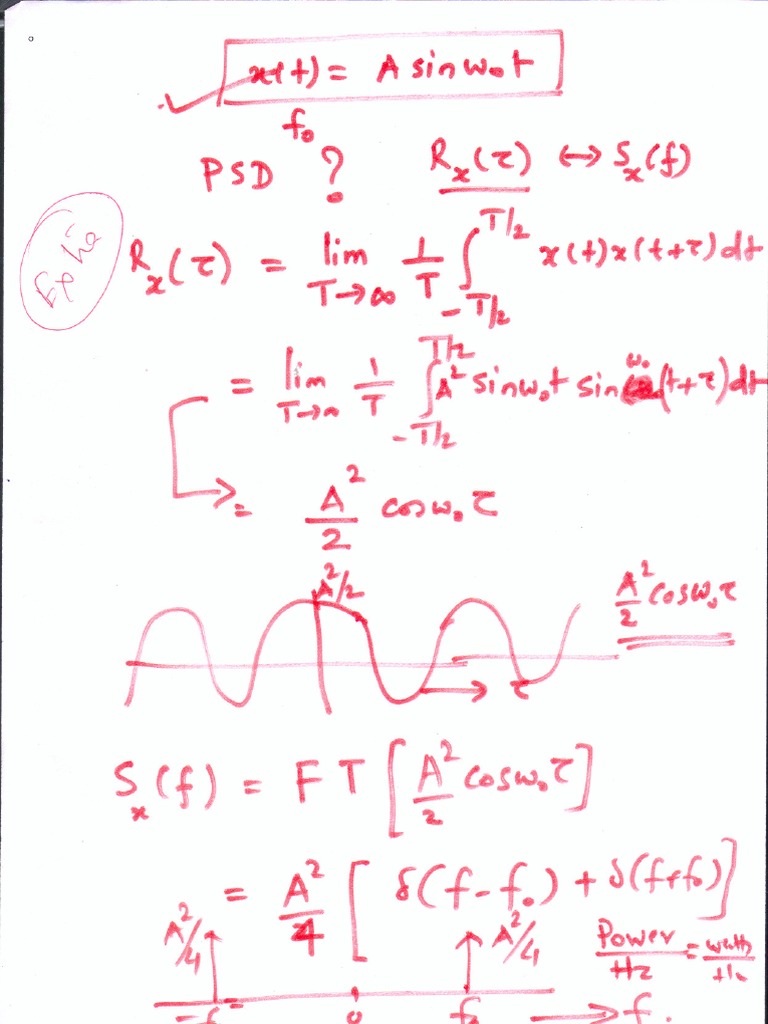 x(t) = A sin ω₀t
f₀
PSD ? Rₓ(τ) ↔ Sₓ(f)
Rₓ(τ) = lim T→∞ 1/T ∫_{-T/2}^{T/2} x(t) x(t+τ) dt
= lim T→∞ 1/T ∫_{-T/2}^{T/2} A² sin ω₀t sin ω₀(t+τ) dt
= A²/2 cos ω₀τ
A²/2
A²/2 cos ω₀τ
τ
Sₓ(f) = FT [A²/2 cos ω₀τ]
= A²/4 [δ(f-f₀) + δ(f+f₀)]
A²/4 A²/4 Power/Hz = watts/Hz
-f₀ 0 f₀ → f.